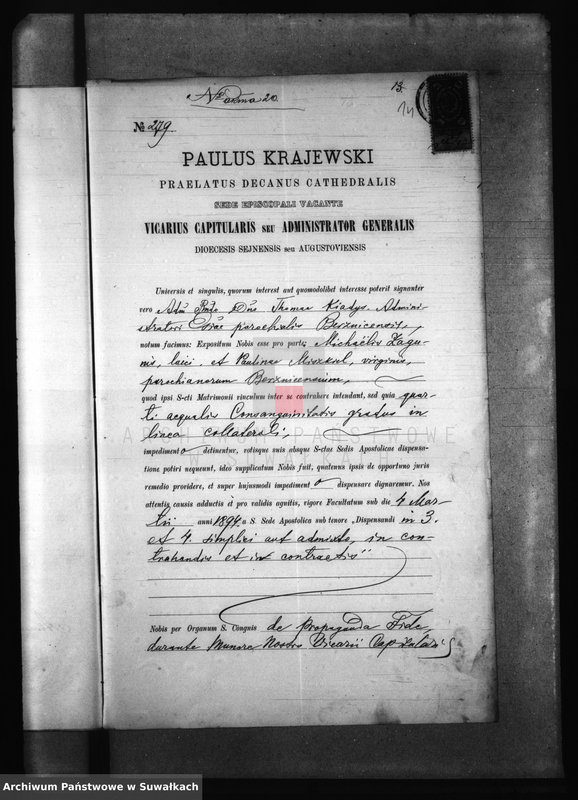 13.
14
№ 279.
PAULUS KRAJEWSKI
PRAELATUS DECANUS CATHEDRALIS
SEDE EPISCOPALI VACANTE
VICARIUS CAPITULARIS SEU ADMINISTRATOR GENERALIS
DIOECESIS SEJNENSIS seu AUGUSTOVIENSIS
Universis et singulis, quorum interest aut quomodolibet interesse poterit signanter
vero Adm Rndo Dno Thomae Kiadys Admini-
stratori Ecciae parochialis Berznicensis,
notum facimus: Expositum Nobis esse pro parte Michaëlis Zagu-
nis, laici et Paulinae Miszkiel, virginis,
parochianorum Berznicensium,
quod ipsi S-cti Matrimonii vinculum inter se contrahere intendant, sed quia quar-
ti aequalis Consanguinitatis gradus in
linea collaterali,
impedimento detinentur, votisque suis absque S-ctae Sedis Apostolicae dispensa-
tione potiri nequeunt, ideo supplicatum Nobis fuit, quatenus ipsis de opportuno juris
remedio providere, et super hujusmodi impedimento dispensare dignaremur. Nos
attentis causis adductis et pro validis agnitis, vigore Facultatum sub die 4 Mar-
tii anni 1897 a S. Sede Apostolica sub tenore „Dispensandi in 3.
et 4. simplici aut admixto, in con-
trahendis et in contractis"
Nobis per Organum S. Congnis de Propaganda Fide,
durante Munere Nostro Vicarii Capitularis
ARCHIWUM PAŃSTWOWE
W SUWAŁKACH
Archiwum Państwowe w Suwałkach